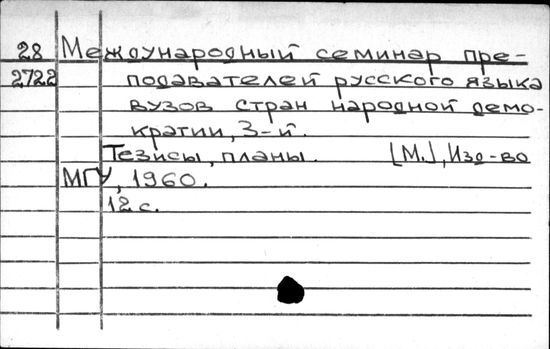 28 Международный семинар пре-
2722 подавателей русского языка
вузов стран народной демо-
кратии, 3-й.
Тезисы, планы. [М.], Изд-во
МГУ, 1960.
12 с.